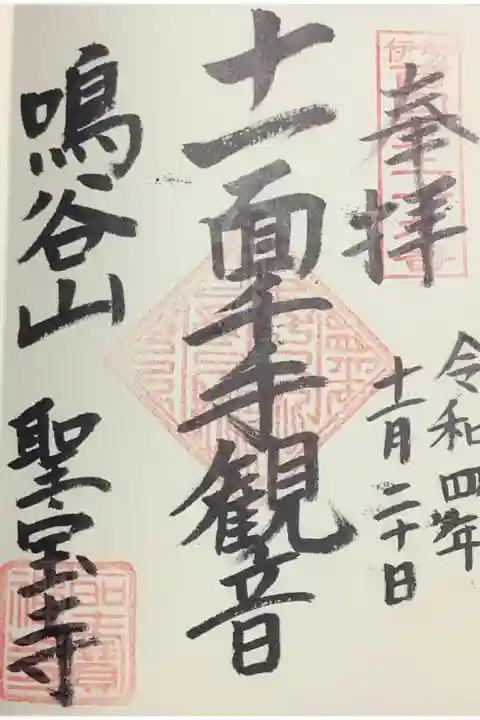 奉拝
令和四年
十一月二十日
十一面千手観音
鳴谷山 聖宝寺